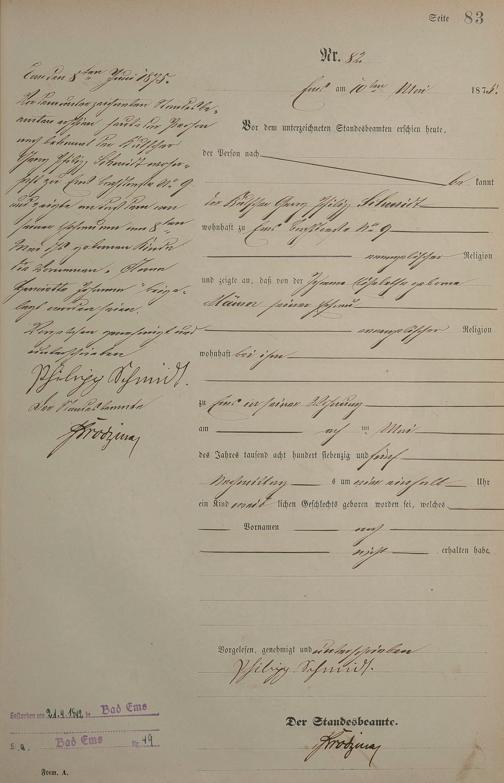 Seite 83
Nr. 82
Ems am 10ten Mai 1875.
Vor dem unterzeichneten Standesbeamten erschien heute,
der Person nach be kannt
der Kutscher Georg Philipp Schmidt
wohnhaft zu Ems No 9
evangelischer Religion
und zeigte an, daß von der geborene
seiner Ehefrau
evangelischer Religion
wohnhaft bei ihm
zu Ems in seiner Wohnung
am acht ten Mai
des Jahres tausend acht hundert siebenzig und fünf
Nachmittag s um ein halb Uhr
ein Kind weib lichen Geschlechts geboren worden sei, welches
Vornamen noch
nicht erhalten habe.
Vorgelesen, genehmigt und unterschrieben
Philipp Schmidt.
Der Standesbeamte.
Ems den 8ten Juni 1875.
Vor dem unterzeichneten Standesbe-
amten erschien heute der Person
nach bekannt der Kutscher
Georg Philipp Schmidt wohn-
haft zu Ems No 9
und zeigte an daß dem von
seiner Ehefrau am 8ten
Mai geborenen Kinde
die Vornamen Anna
Henriette Johanna beige-
legt worden seien.
Vorgelesen genehmigt und
unterschrieben
Philipp Schmidt.
Der Standesbeamte
Gestorben am in Bad Ems
S. A. Bad Ems Nr. 49
Form. A.